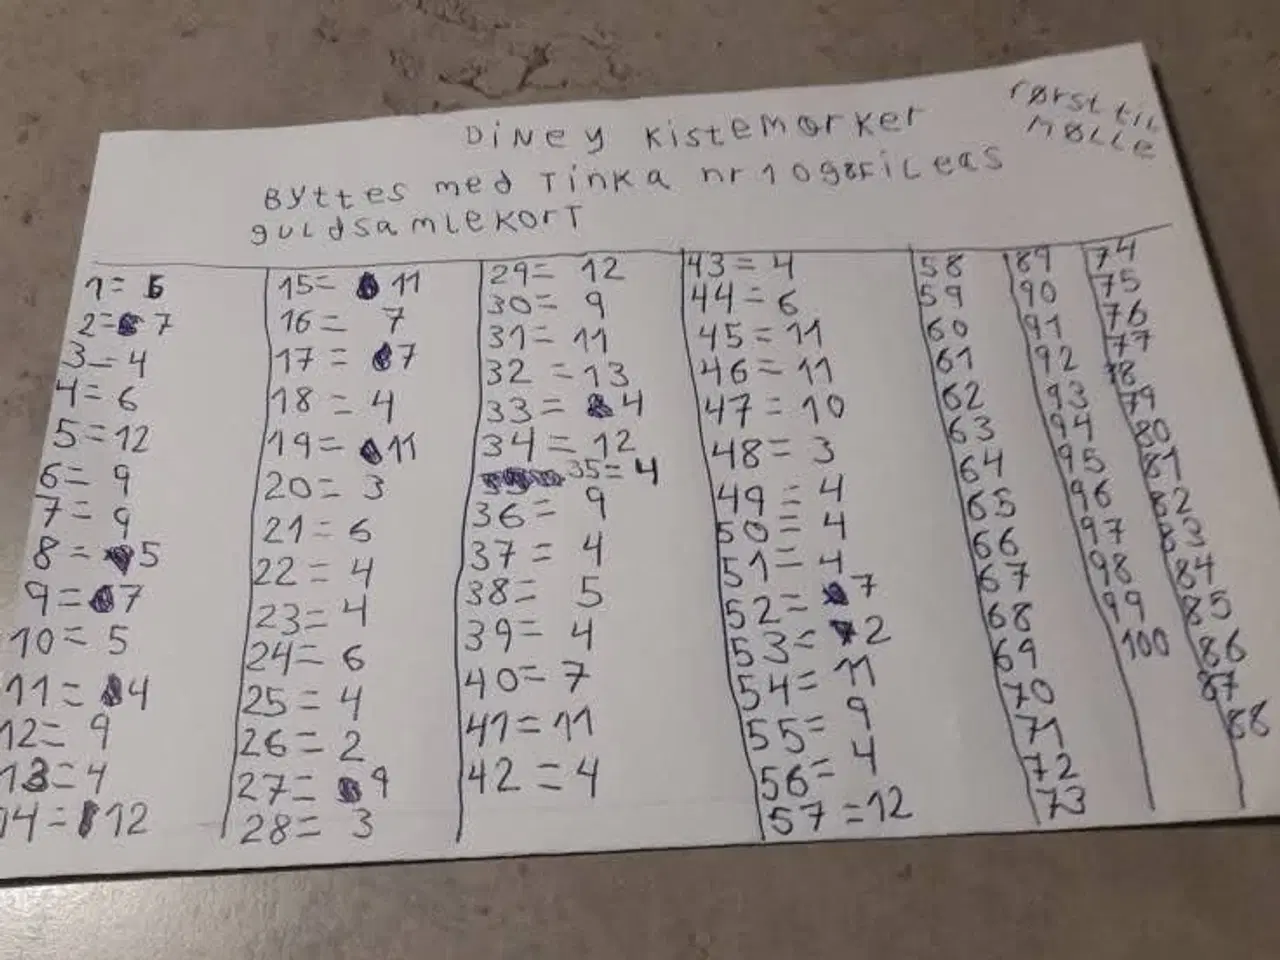 DiNey KisteMorker
rørst til
MØLLE
BYttes med Tinka nr 10g8FiLeas
guLdsamLeKorT
1= 6
2= 7
3= 4
4= 6
5= 12
6= 9
7= 9
8= 5
9= 7
10= 5
11= 4
12= 9
13= 4
14= 12
15= 11
16= 7
17= 7
18= 4
19= 11
20= 3
21= 6
22= 4
23= 4
24= 6
25= 4
26= 2
27= 9
28= 3
29= 12
30= 9
31= 11
32= 13
33= 4
34= 12
35= 4
36= 9
37= 4
38= 5
39= 4
40= 7
41= 11
42= 4
43= 4
44= 6
45= 11
46= 11
47= 10
48= 3
49= 4
50= 4
51= 4
52= 7
53= 2
54= 11
55= 9
56= 4
57= 12
58
59
60
61
62
63
64
65
66
67
68
69
70
71
72
73
89
90
91
92
93
94
95
96
97
98
99
100
74
75
76
77
78
79
80
81
82
83
84
85
86
87
88